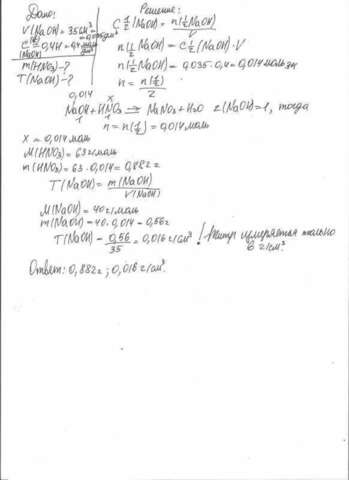 Дано:
V(NaOH) = 35 см³
= 0,035 дм³
C(1/z) = 0,4Н = 0,4 моль/дм³
(NaOH)
m(HNO₃) - ?
T(NaOH) - ?
Решение:
C 1/z (NaOH) = n(1/z NaOH)/V
n(1/z NaOH) = C 1/z (NaOH) · V
n(1/z NaOH) = 0,035 · 0,4 = 0,014 моль
n = n(1/z)/z
0,014 x
NaOH + HNO₃ → NaNO₃ + H₂O z(NaOH) = 1, тогда
1 1
n = n(1/z) = 0,014 моль
x = 0,014 моль
M(HNO₃) = 63 г/моль
m(HNO₃) = 63 · 0,014 = 0,882 г
T(NaOH) = m(NaOH)/V(NaOH)
M(NaOH) = 40 г/моль
m(NaOH) = 40 · 0,014 = 0,56 г
T(NaOH) = 0,56/35 = 0,016 г/см³ ! Титр измеряется только
в г/см³
Ответ: 0,882 г; 0,016 г/см³.